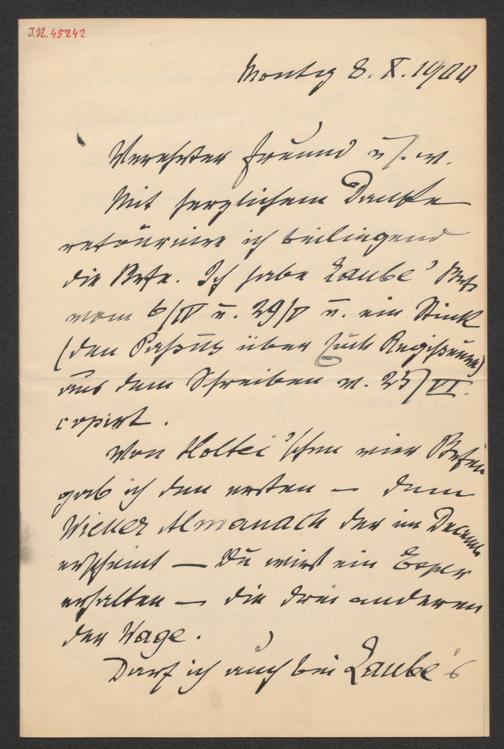 I.N. 45242
Montag 8. X. 1900
Verehrter Freund u.s.w.
Mit herzlichem Danke
retourniere ich beiliegend
die Briefe. Ich habe Laube's Brf.
vom 6/IV u. 29/V u. ein Stück
(den Passus über Regisseure)
aus dem Schreiben v. 25/VI.
copirt.
Von Holtei'schen vier Briefen
gab ich den ersten — dem
Wiener Almanach der im Decemb.
erscheint — Du wirst ein Exper
erhalten — die drei anderen
der Wage.
Darf ich auch bei Laube's